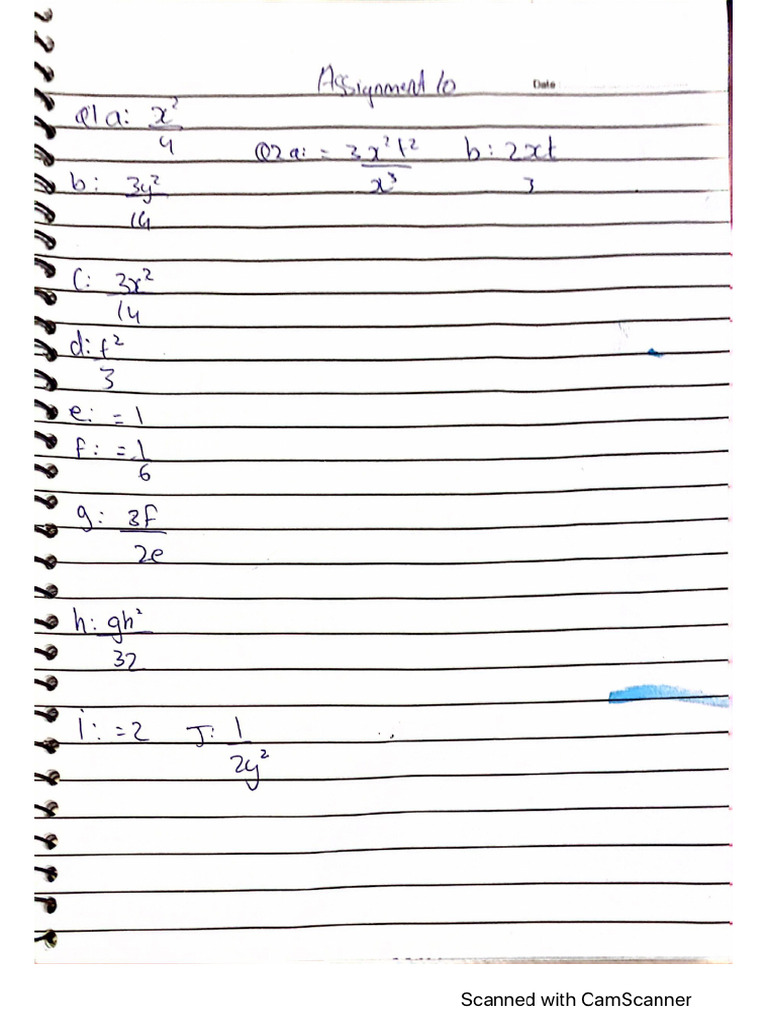 Assignment 10
Date
Q1 a: x²/4
Q2 a: = 3x²t²/x³ b: 2xt/3
b: 3y²/14
C: 3x²/14
d: t²/3
e: = 1
f: = 1/6
g: 3f/2e
h: gh²/32
i: = 2 J: 1/2y²
Scanned with CamScanner